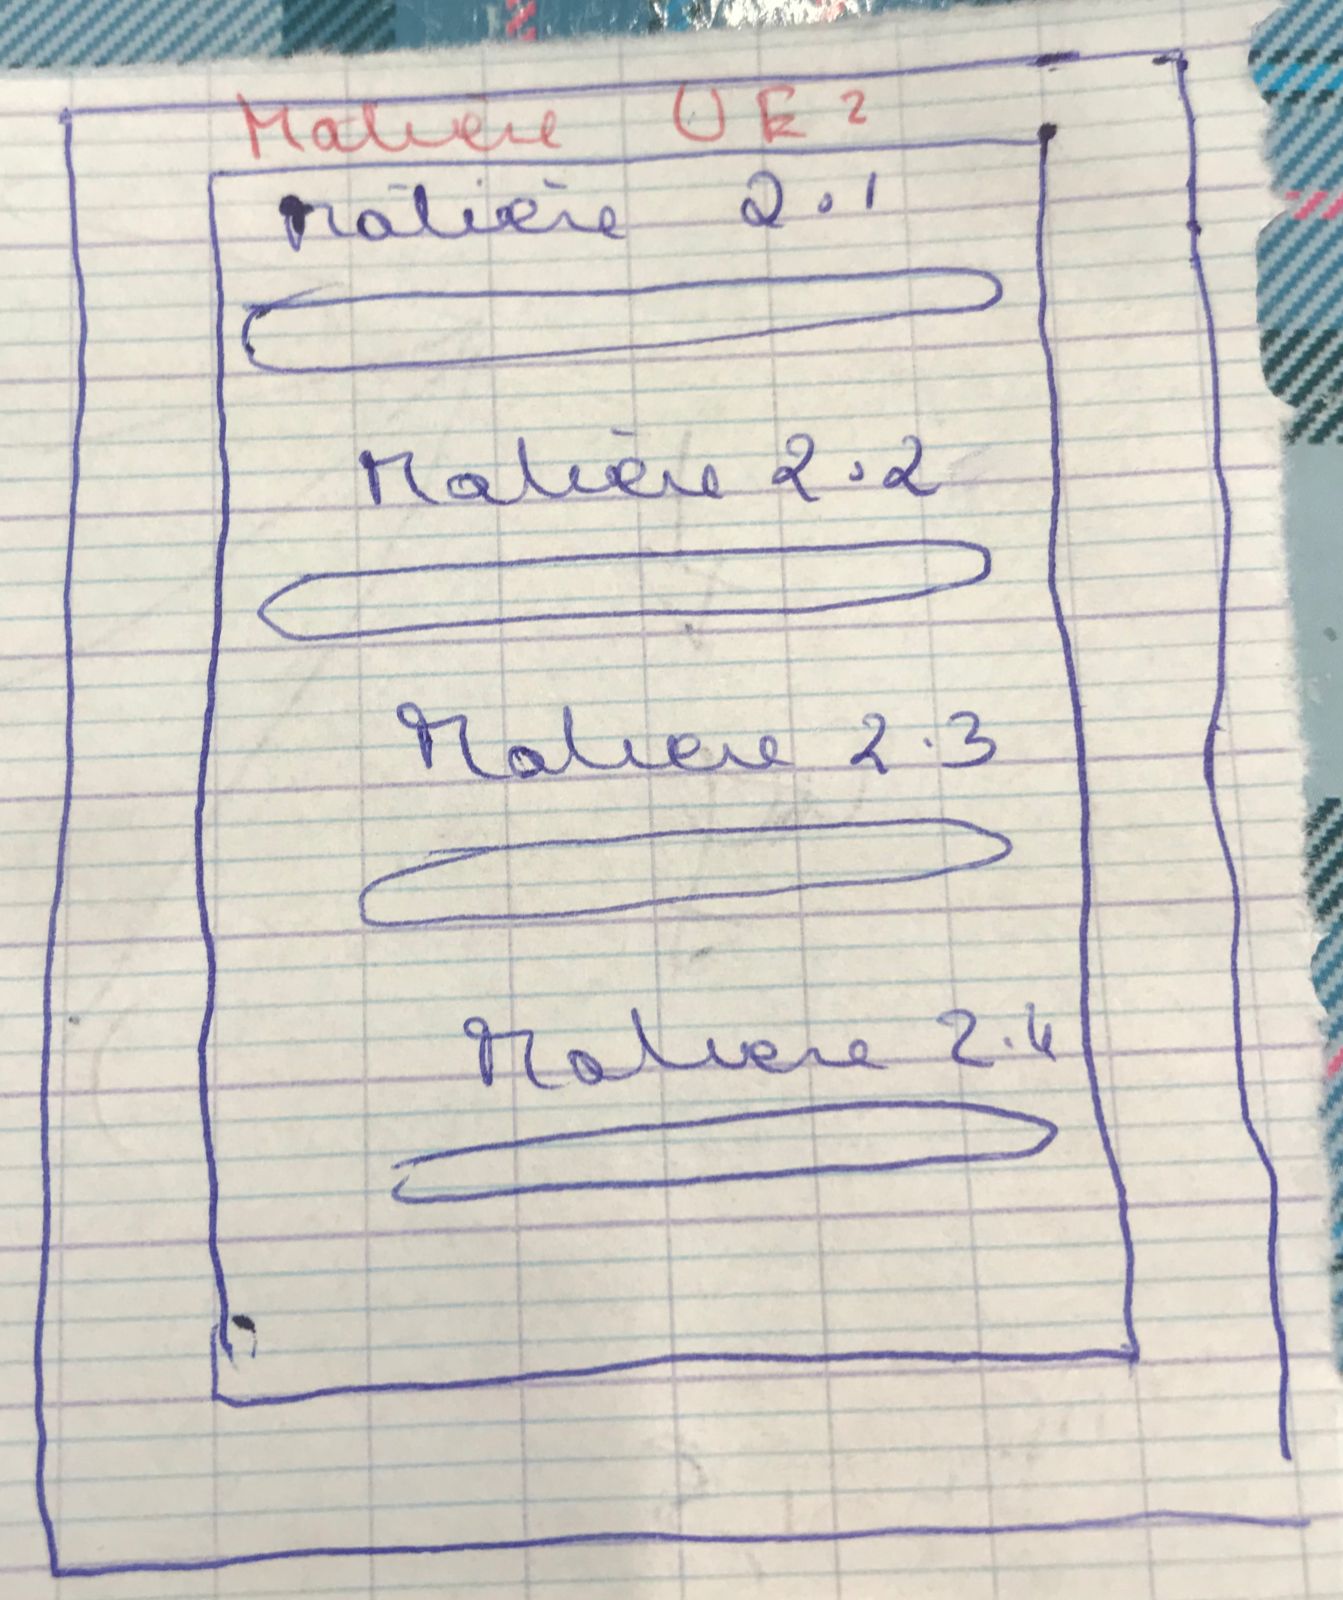 Matière UE2
Matière 2.1
Matière 2.2
Matiere 2.3
Matiere 2.4